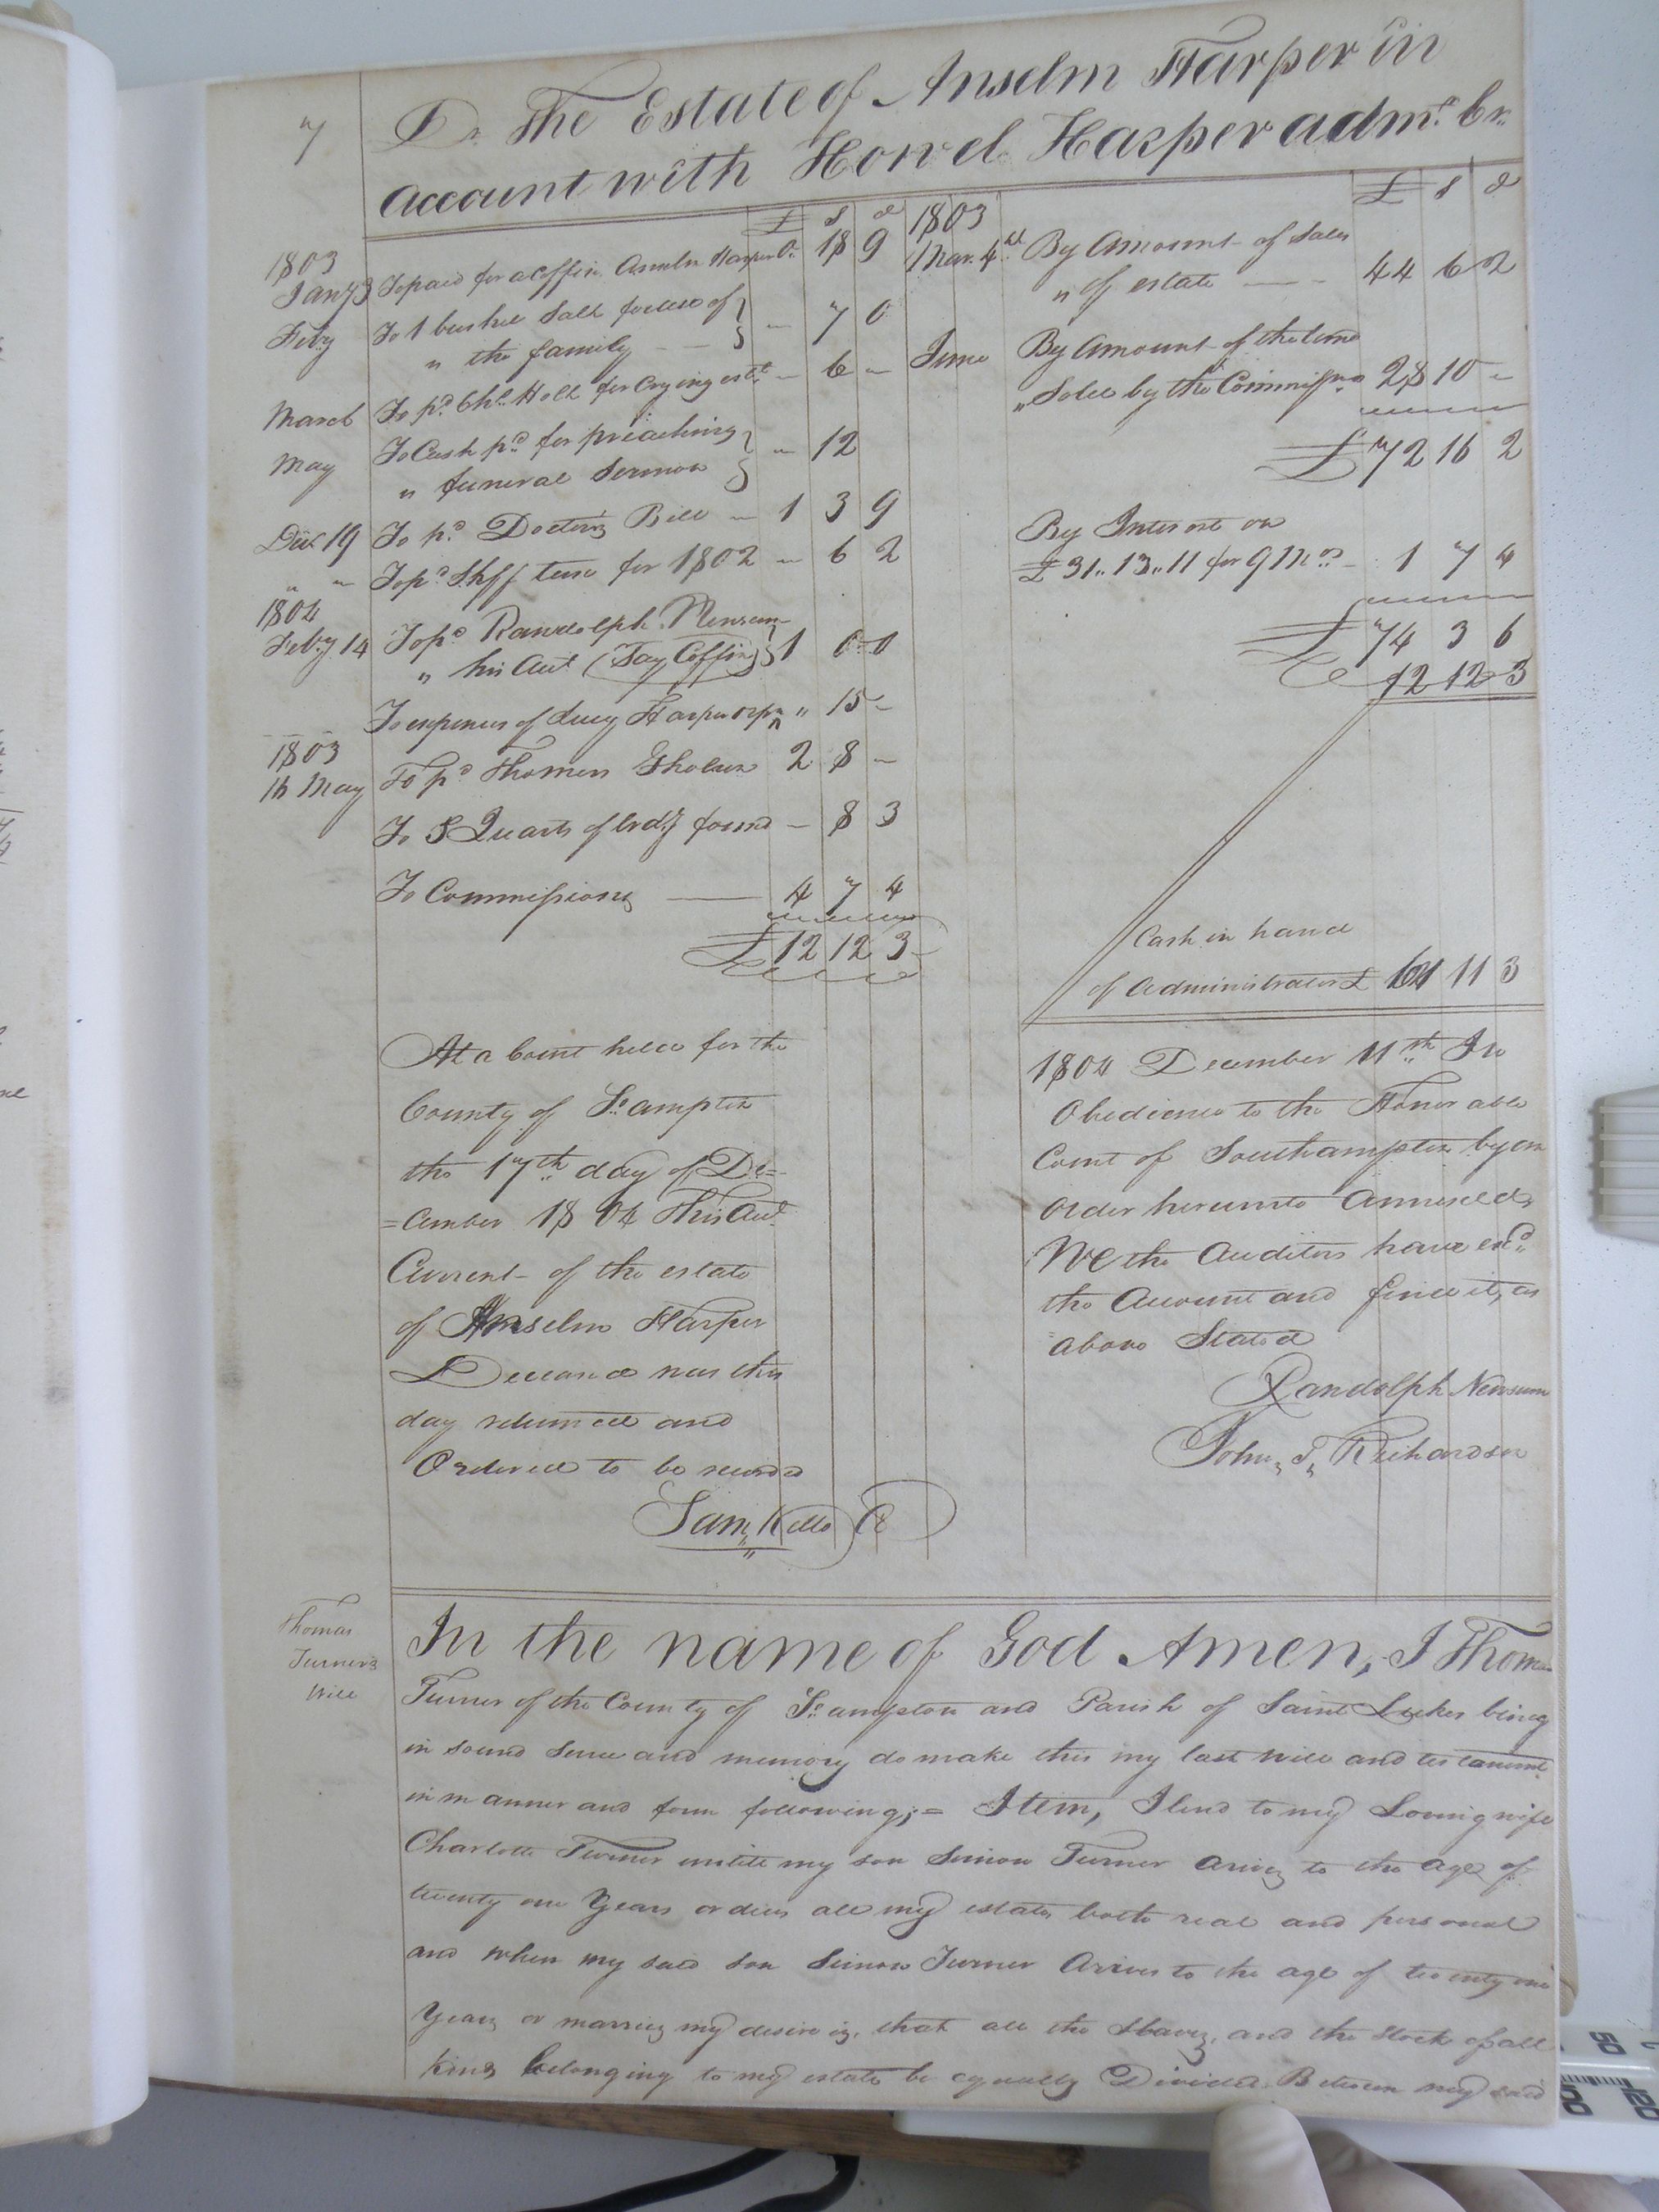 7
Dr. The Estate of Anselm Harper in
account with Howel Harper admr. Cr.
£ s d
1803
Jany 3 To paid for a Coffin Anselm Harper 0. 18 9
Feby To 1 bushel Salt for use of
" the family — 7 0
March To pd. Chs. Holt for Crying estt. — 6 —
May To Cash pd. for preaching
" funeral Sermon — 12
Decr 19 To pd. Doctors Bill — 1 3 9
" " To pd. Shff for 1802 — 6 2
1804
Feby. 14 To pd. Randolph Newsum
" his Act (Say Coffin) 1 0 0
To expences of Lucy Harper " 15 —
1803
16 May To pd. Thomas Gholson 2 8 —
To Quarts of brdy found — 8 3
To Commissions — 4 7 4
£ 12 12 3
£ s d
1803
Mar. 4th By Amount of Sales
" of estate — 44 6 2
June By Amount of the land
" Sold by the Commissrs 28 10 —
£ 72 16 2
By Interest on
£31..13..11 for 9 Mos. — 1 7 4
£ 74 3 6
12 12 3
Cash in hand
of Administrator £ 61 11 3
At a Court held for the
County of So.ampton
the 17th day of De=
=cember 1804 This Act.
Current of the estate
of Anselm Harper
Deceased was this
day returned and
Ordered to be recorded
Sam, Kello C
1804 December 11th In
Obedience to the Honorable
Court of Southampton by an
Order hereunto Annexed
We the Auditors have exd.
the Account and find it, as
above Stated
Randolph Newsum
John, T, Richardson
Thomas
Turners
Will
In the name of God Amen, I Thomas
Turner of the County of So.ampton and Parish of Saint Lukes being
in sound Sense and memory do make this my last will and testament
in manner and form following;= Item, I lend to my Loving wife
Charlotte Turner untill my son Simon Turner arives to the age of
twenty one Years or dies all my estate both real and personal
and when my said son Simon Turner Arives to the age of twenty one
Years or marries my desire is, that all the Slaves, and the Stock of all
kinds belonging to my estate be equally Divided Between my said